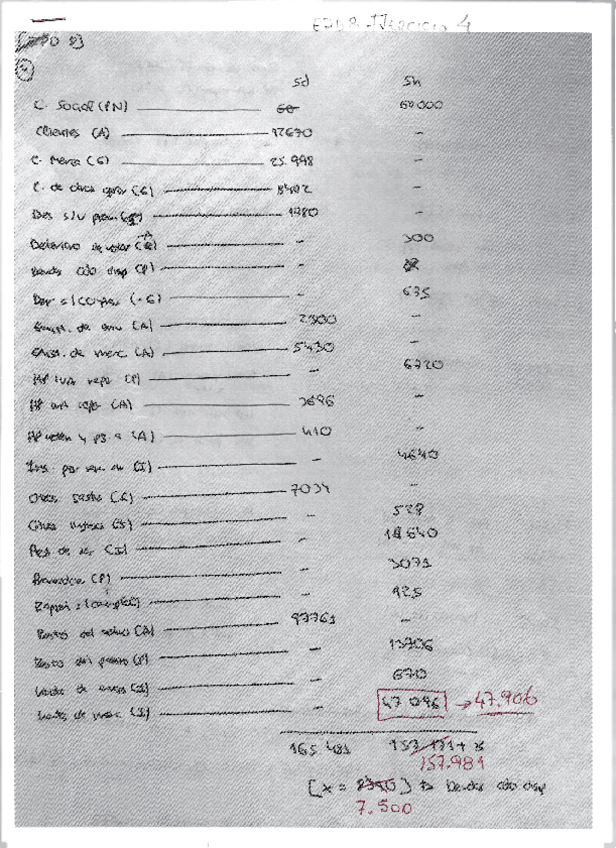 EPD 8 - Ejercicio 4
EPD 8)
4
sd sh
C. Social (PN) 60 60000
Clientes (A) 12670 -
C. Merca (G) 25.998 -
C. de otros aprov (G) 8402 -
Des s/v 1280 -
Deterioro de valor - 300
Deudas c/do disp (P) -
s/compras (-G) - 635
Exist. de env (A) 2300 -
Exist. de merc. (A) 5430 -
HP IVA rep. (P) - 6720
HP IVA sop. (A) 3696 -
HP reten y ps. a (A) 410 -
Ing. por (I) - 4640
Otros gastos (G) 7034 -
Otros ingresos (I) - 528
Pest de ser (I) - 18640
Proveedores (P) - 3071
Rappel s/comp (G) - 925
Resto del activo (A) 97761 -
Resto del pasivo (P) - 13706
Venta de envas (I) - 670
Ventas de merc. (I) - 47 096 → 47.906
165 481 157.171 + x
157.981
[x = 8310] Deudas c/do disp
7.500